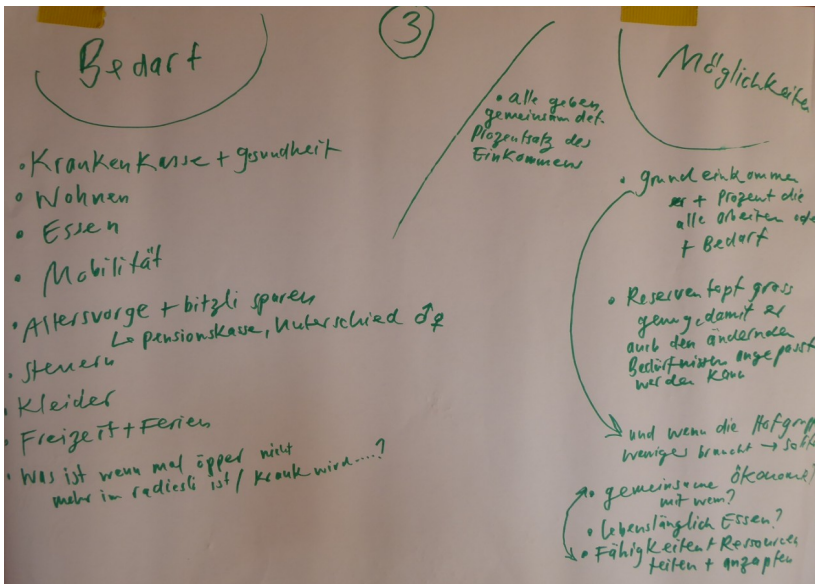 Bedarf
• Krankenkasse + gesundheit
• Wohnen
• Essen
• Mobilität
• Altersvorge + bitzli sparen
↳ pensionskasse, Unterschied ♂♀
• Steuern
• Kleider
• Freizeit + Ferien
• Was ist wenn mal öpper nicht
mehr im radiesli ist / Krank wird....?
3
• alle geben
gemeinsam def.
Prozentsatz des
Einkommens
Möglichkeiten
• grundeinkommen
+ Prozent die
alle arbeiten
+ Bedarf
• Reserventopf gross
genug, damit er
auch den ändernden
Bedürfnissen angepasst
werden kann
und wenn die Hofgrupp
weniger braucht →
• gemeinsame Ökonomie?
mit wem?
• lebenslänglich Essen?
• Fähigkeiten + Ressourcen
teilen + anzapfen